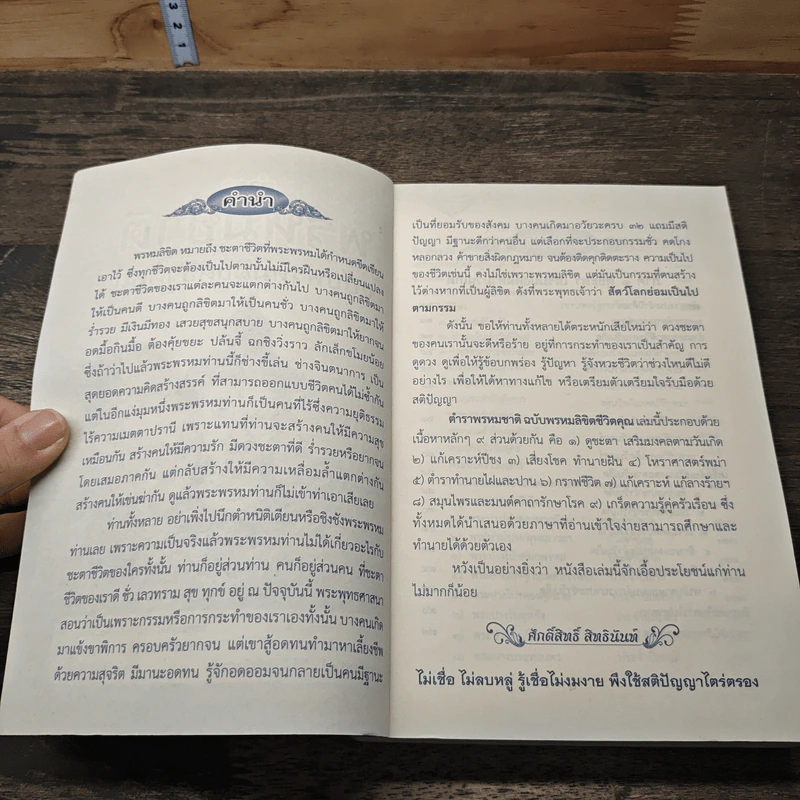 3 2 1
คำนำ
พรหมลิขิต หมายถึง ชะตาชีวิตที่พระพรหมได้กำหนดขีดเขียน
เอาไว้ ซึ่งทุกชีวิตจะต้องเป็นไปตามนั้นไม่มีใครฝืนหรือเปลี่ยนแปลง
ได้ ชะตาชีวิตของเราแต่ละคนจะแตกต่างกันไป บางคนถูกลิขิตมา
ให้เป็นคนดี บางคนถูกลิขิตมาให้เป็นคนชั่ว บางคนถูกลิขิตมาให้
ร่ำรวย มีเงินมีทอง เสวยสุขสนุกสบาย บางคนถูกลิขิตมาให้ยากจน
อดมื้อกินมื้อ ต้องคุ้ยขยะ ปล้นจี้ ฉกชิงวิ่งราว ลักเล็กขโมยน้อย
ซึ่งถ้าว่าไปแล้วพระพรหมท่านนี้ก็ช่างขี้เล่น ช่างจินตนาการ เป็น
สุดยอดความคิดสร้างสรรค์ ที่สามารถออกแบบชีวิตคนได้ไม่ซ้ำกัน
แต่ในอีกแง่มุมหนึ่งพระพรหมท่านก็เป็นคนที่ไร้ซึ่งความยุติธรรม
ไร้ความเมตตาปรานี เพราะแทนที่ท่านจะสร้างคนให้มีความสุข
เหมือนกัน สร้างคนให้มีความรัก มีดวงชะตาที่ดี ร่ำรวยหรือยากจน
โดยเสมอภาคกัน แต่กลับสร้างให้มีความเหลื่อมล้ำแตกต่างกัน
สร้างคนให้เข่นฆ่ากัน ดูแล้วพระพรหมท่านก็ไม่เข้าท่าเอาเสียเลย
ท่านทั้งหลาย อย่าเพิ่งไปนึกตำหนิติเตียนหรือชิงชังพระพรหม
ท่านเลย เพราะความเป็นจริงแล้วพระพรหมท่านไม่ได้เกี่ยวอะไรกับ
ชะตาชีวิตของใครทั้งนั้น ท่านก็อยู่ส่วนท่าน คนก็อยู่ส่วนคน ที่ชะตา
ชีวิตของเราดี ชั่ว เลวทราม สุข ทุกข์ อยู่ ณ ปัจจุบันนี้ พระพุทธศาสนา
สอนว่าเป็นเพราะกรรมหรือการกระทำของเราเองทั้งนั้น บางคนเกิด
มาแข้งขาพิการ ครอบครัวยากจน แต่เขาสู้อดทนทำมาหาเลี้ยงชีพ
ด้วยความสุจริต มีมานะอดทน รู้จักอดออมจนกลายเป็นคนมีฐานะ
เป็นที่ยอมรับของสังคม บางคนเกิดมาอวัยวะครบ ๓๒ แถมมีสติ
ปัญญา มีฐานะดีกว่าคนอื่น แต่เลือกที่จะประกอบกรรมชั่ว คดโกง
หลอกลวง ค้าขายสิ่งผิดกฎหมาย จนต้องติดคุกติดตะราง ความเป็นไป
ของชีวิตเช่นนี้ คงไม่ใช่เพราะพรหมลิขิต แต่มันเป็นกรรมที่ตนสร้าง
ไว้ต่างหากที่เป็นผู้ลิขิต ดังที่พระพุทธเจ้าว่า สัตว์โลกย่อมเป็นไป
ตามกรรม
ดังนั้น ขอให้ท่านทั้งหลายได้ตระหนักเสียใหม่ว่า ดวงชะตา
ของคนเรานั้นจะดีหรือร้าย อยู่ที่การกระทำของเราเป็นสำคัญ การ
ดูดวง ดูเพื่อให้รู้ข้อบกพร่อง รู้ปัญหา รู้จังหวะชีวิตว่าช่วงไหนดีไม่ดี
อย่างไร เพื่อให้ได้หาทางแก้ไข หรือเตรียมตัวเตรียมใจรับมือด้วย
สติปัญญา
ตำราพรหมชาติ ฉบับพรหมลิขิตชีวิตคุณ เล่มนี้ประกอบด้วย
เนื้อหาหลักๆ ๙ ส่วนด้วยกัน คือ ๑) ดูชะตา เสริมมงคลตามวันเกิด
๒) แก้เคราะห์ปีชง ๓) เสี่ยงโชค ทำนายฝัน ๔) โหราศาสตร์พม่า
๕) ตำราทำนายไฝและปาน ๖) กราฟชีวิต ๗) แก้เคราะห์ แก้ลางร้ายฯ
๘) สมุนไพรและมนต์คาถารักษาโรค ๙) เกร็ดความรู้คู่ครัวเรือน ซึ่ง
ทั้งหมดได้นำเสนอด้วยภาษาที่อ่านเข้าใจง่ายสามารถศึกษาและ
ทำนายได้ด้วยตัวเอง
หวังเป็นอย่างยิ่งว่า หนังสือเล่มนี้จักเอื้อประโยชน์แก่ท่าน
ไม่มากก็น้อย
ศักดิ์สิทธิ์ สิทธินันท์
ไม่เชื่อ ไม่ลบหลู่ รู้เชื่อไม่งมงาย พึงใช้สติปัญญาไตร่ตรอง